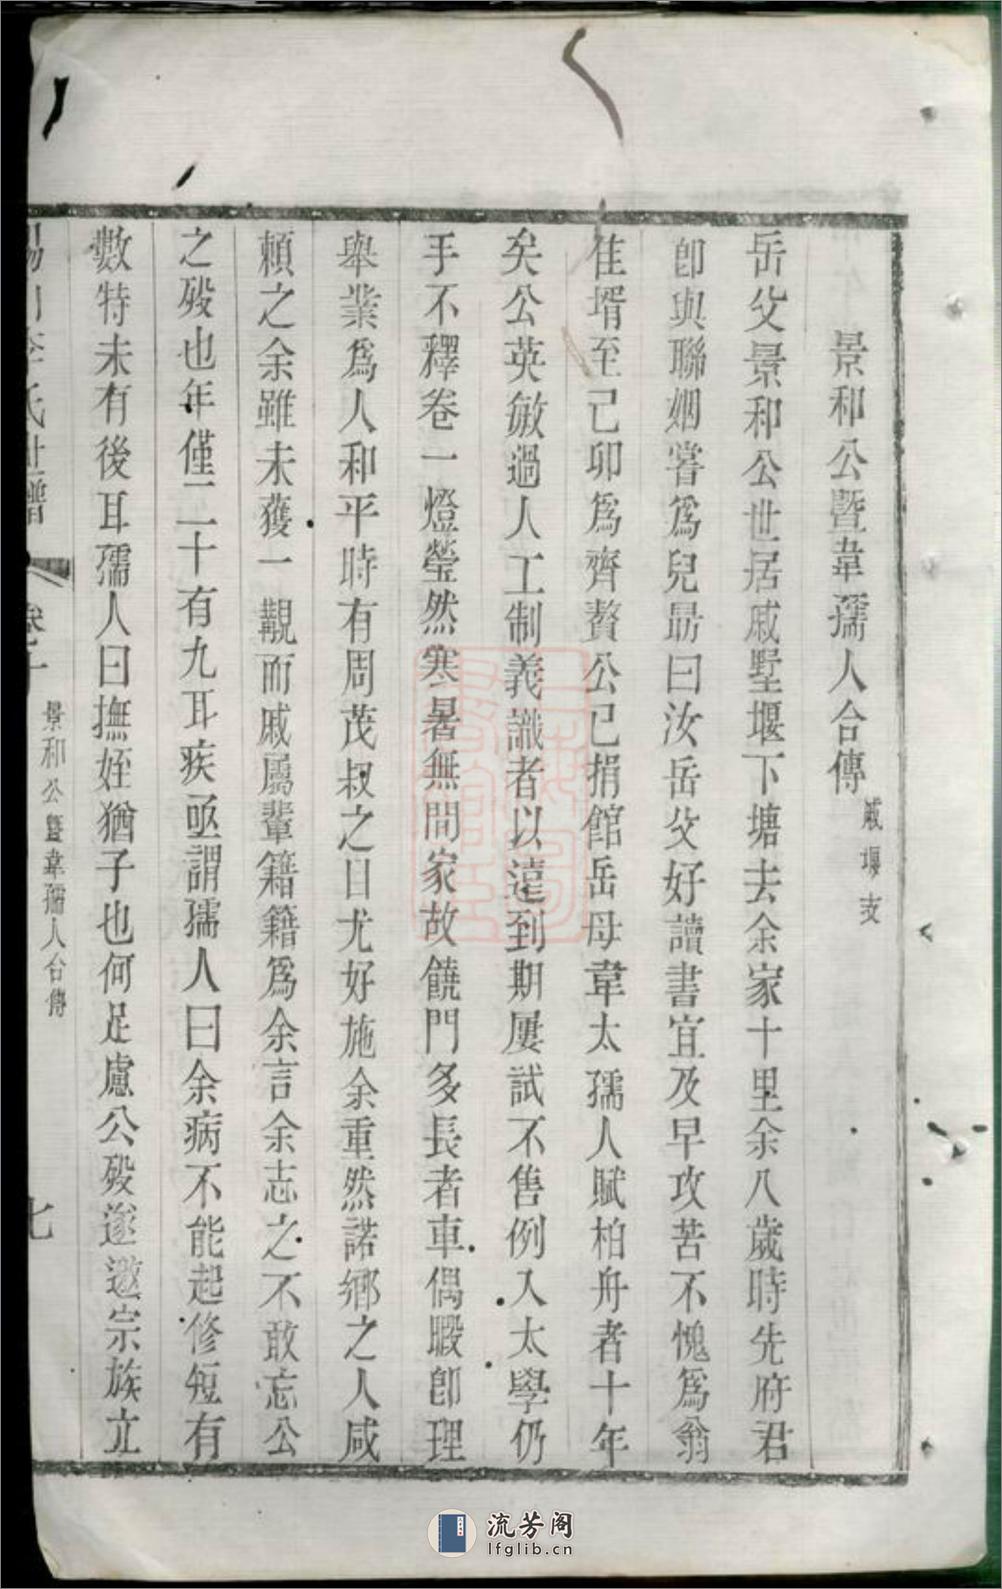 景和公暨韋孺人合傳 戚堰支
岳父景和公世居戚墅堰下塘去余家十里余八歲時先府君
卽與聯姻嘗爲兒勗曰汝岳父好讀書宜及早攻苦不愧爲翁
佳壻至己卯爲齊贅公已捐館岳母韋太孺人賦柏舟者十年
矣公英敏過人工制義識者以遠到期屢試不售例入太學仍
手不釋卷一燈瑩然寒暑無間家故饒門多長者車偶暇卽理
舉業爲人和平時有周茂叔之目尤好施余重然諾鄉之人咸
賴之余雖未獲一覯而戚屬輩籍籍爲余言余志之不敢忘公
之歿也年僅二十有九耳疾亟謂孺人曰余病不能起修短有
數特未有後耳孺人曰撫姪猶子也何足慮公歿遂邀宗族立
李氏世譜 景和公暨韋孺人合傳 七
流芳阁
lfglib.cn